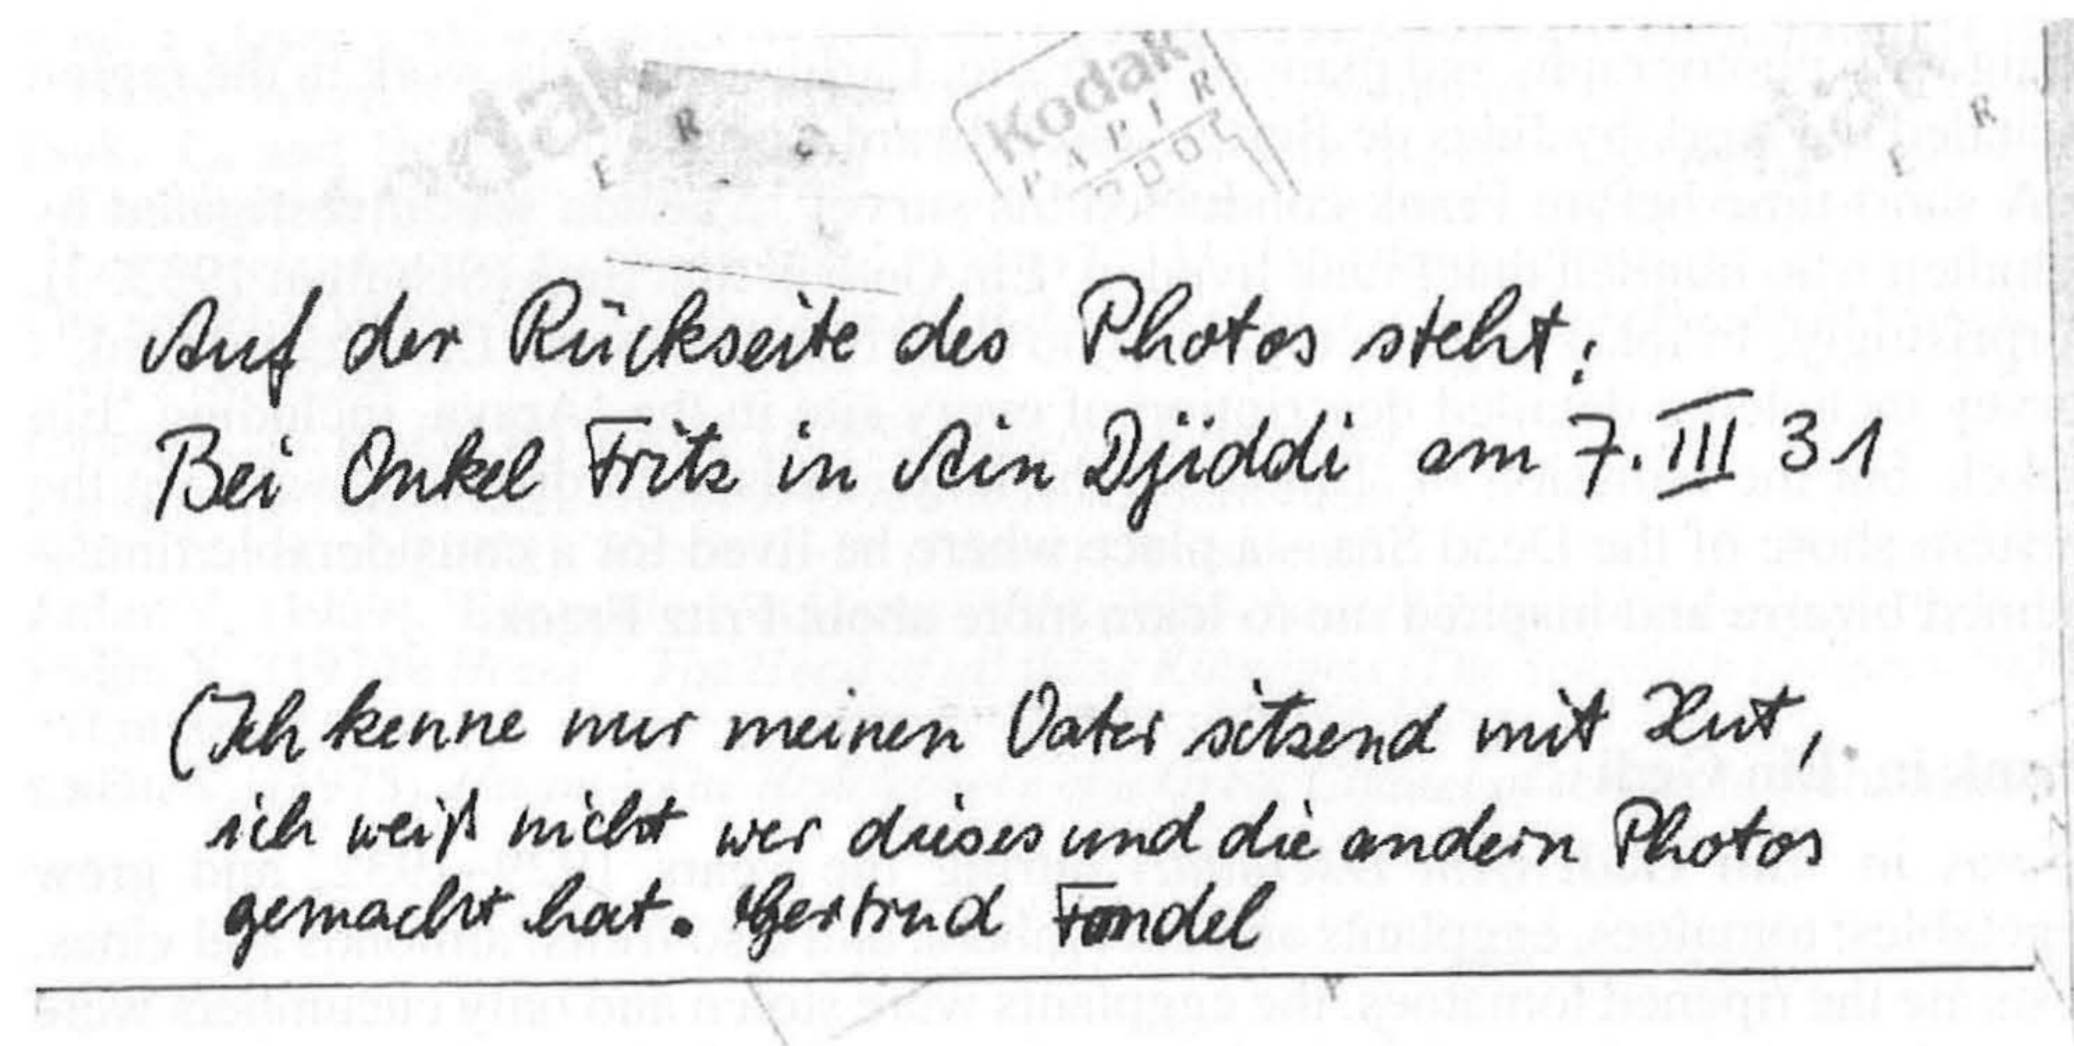 Kodak
PAPIR
Auf der Rückseite des Photos steht:
Bei Onkel Fritz in Ain Djiddi am 7. III 31
(Ich kenne nur meinen Vater sitzend mit Hut,
ich weiß nicht wer dieses und die andern Photos
gemacht hat. Gertrud Fandel